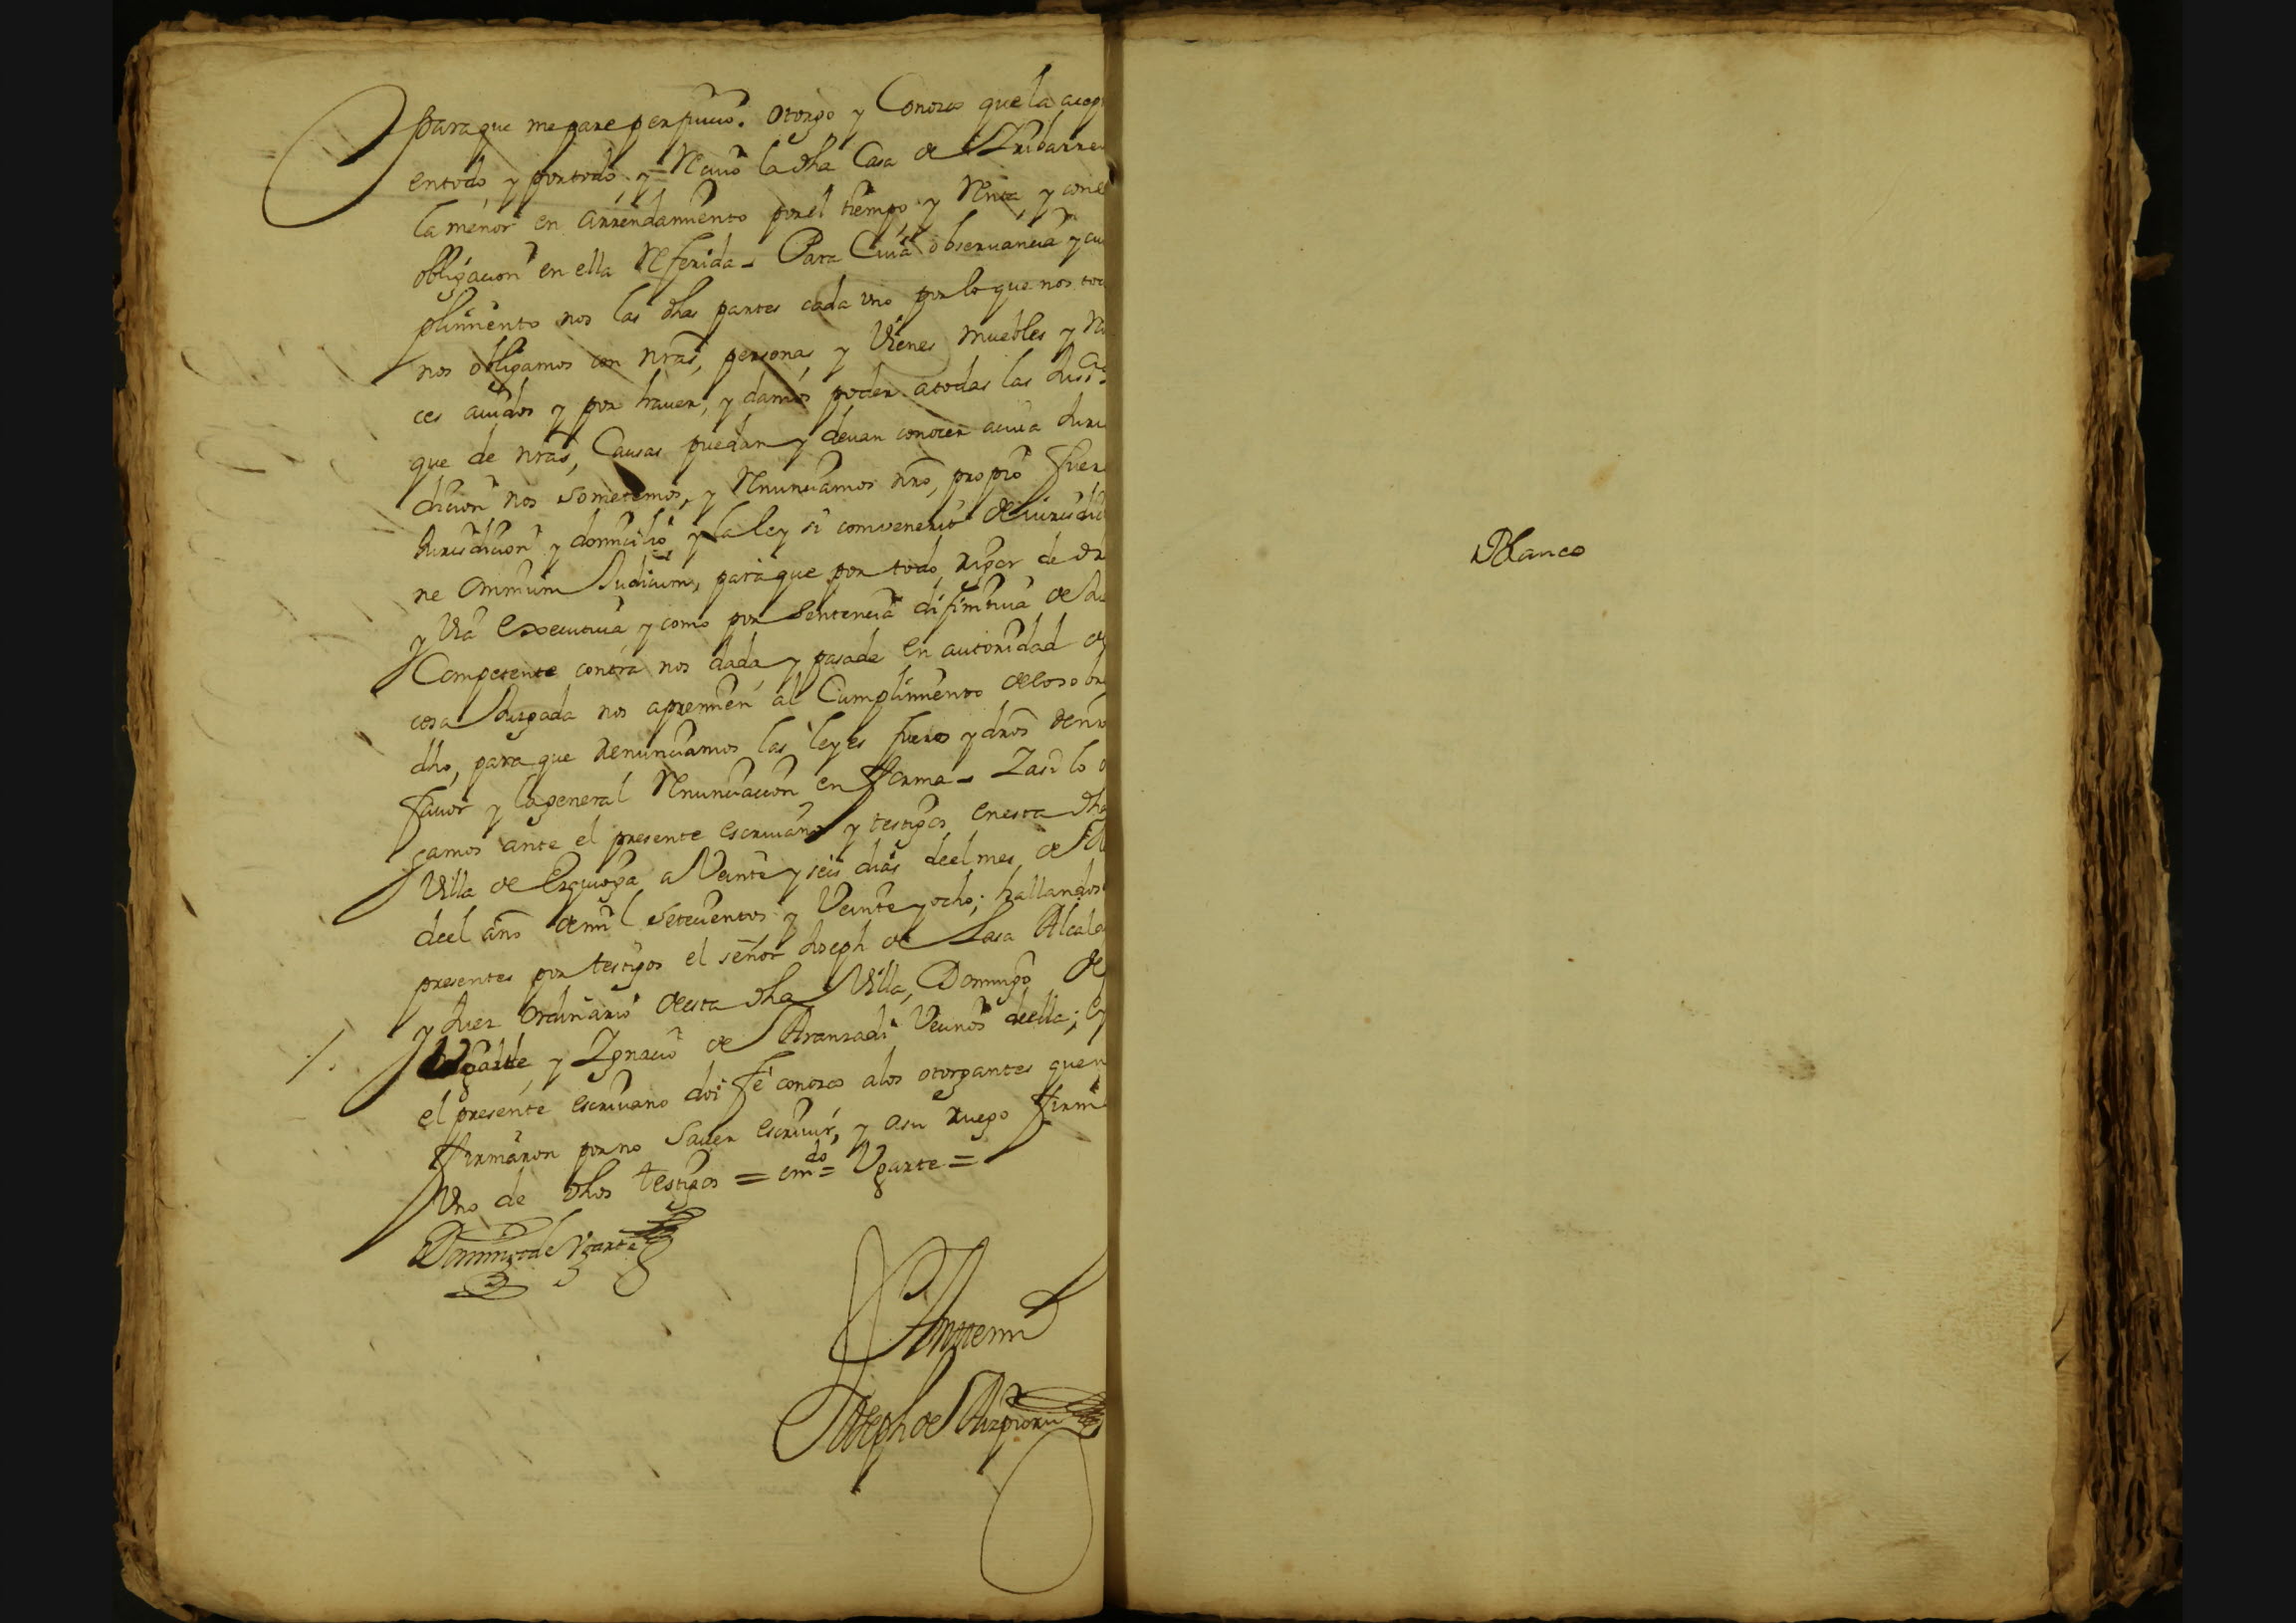 para que me pare perjuicio. otorgo y Conosco que la acep
entodo, y portodo, y Reciuo la dha Casa de Yribarren
la menor en arrendamiento por el tiempo, y Renta, y con
obligacion en ella Referida - Para Cuia obseruancia y cu
plimiento nos las dhas partes cada vno por lo que nos toc
nos obligamos con nras, personas, y Vienes muebles y Ra
ces auidos y por hauer, y damos poder atodas las Juss.as
que de nras, Causas puedan y deuan conocer acuia Juris
dicion nos sometemos, y Renunciamos nro, propio fuero
Jurisdicion y domicilio y la ley si comvenerit de iurisdicio
ne omnium Judicum, para que por todo, rigor de dr
y Via executiua y como por Sentencia difinitiua de Ju
Competente contra nos dada, y pasada en autoridad de
cosa Juzgada nos apremien al Cumplimiento deloso bre
dho, para que Renunciamos las leyes fueros y dros denro
fauor y la general Renunciacion en forma - Zasi lo o
gamos ante el presente escriuano y testigos enesta dha
Villa de Ezquioga a Veinte y seis dias deel mes de
deel año de mil setecientos y Veinte y ocho; hallandos
presentes por testigos el señor Joseph de Lasa Alcalde
y Juez ordinario desta dha Villa, Domingo de
Ugarte y Ygnacio de Aranzadi Vecinos deella; Ey
el presente escriuano doi fé conosco alos otorgantes que n
firmaron por no sauer escriuir, y asu ruego firmo
Vno de dhos testigos = emdo = Vgarte =
Domingo de Vgarte
Antemi
Joseph de Aizpioru
Blanco